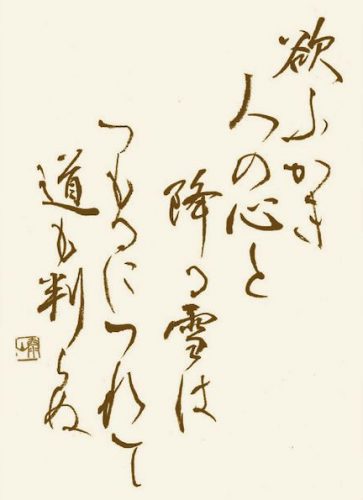 欲ふかき
人の心と
降る雪は
つもるにつれて
道も判らぬ